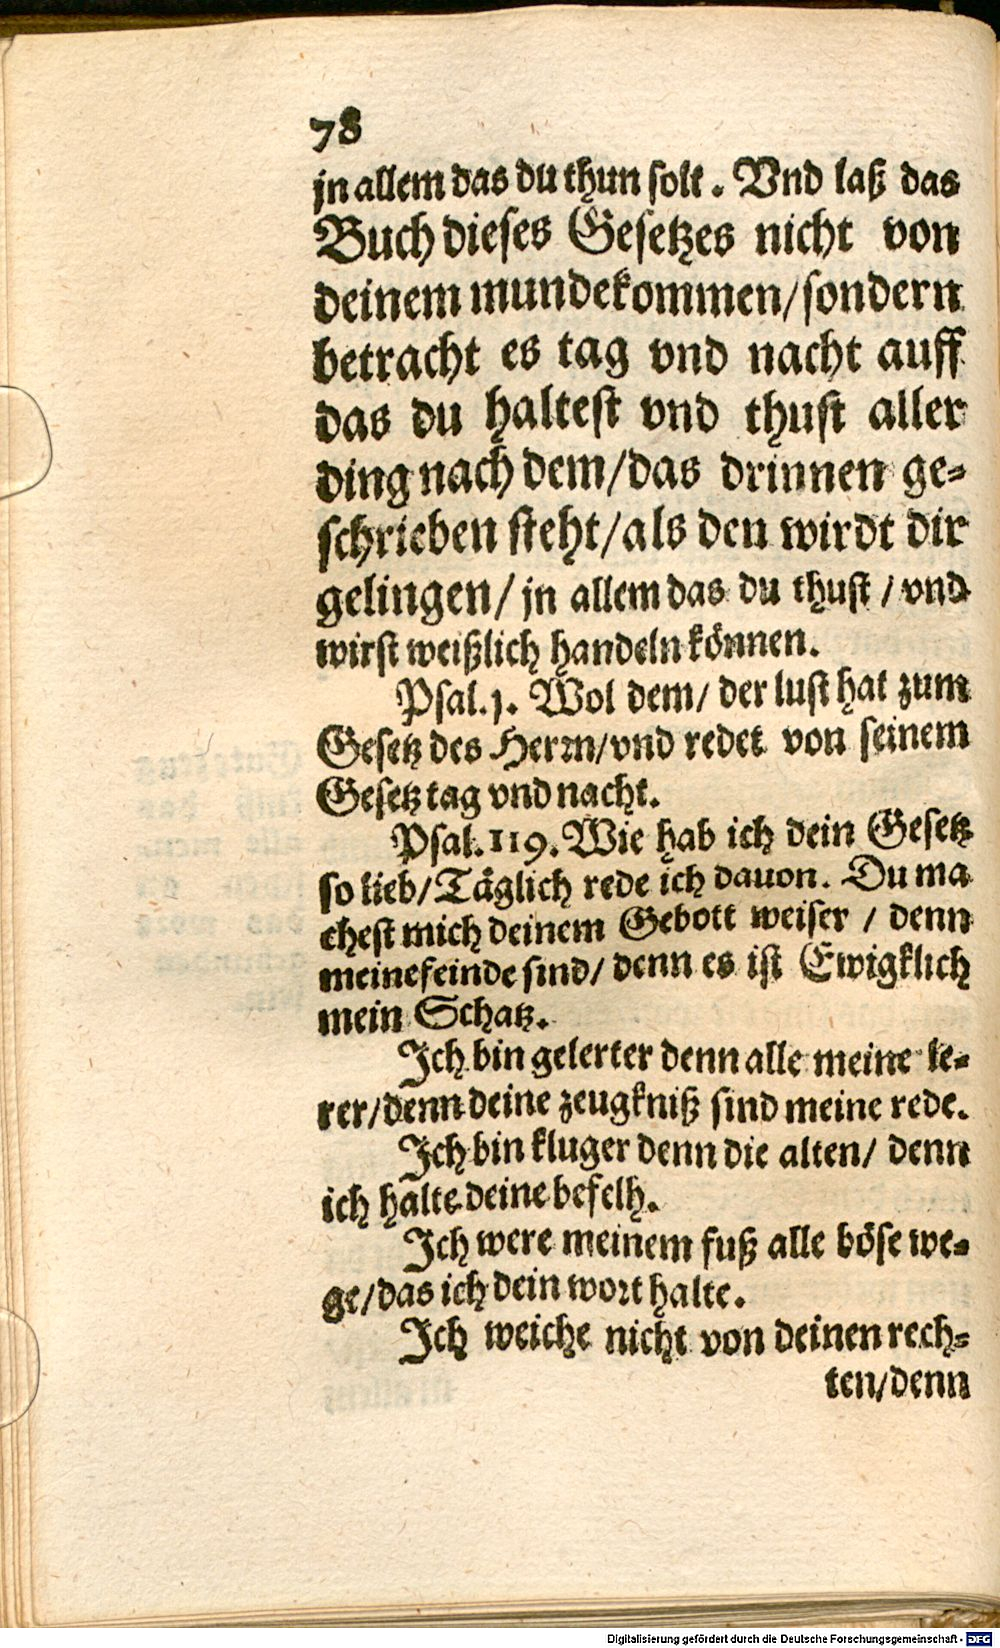 78
jn allem das du thun solt. Vnd laß das
Buch dieses Gesetzes nicht von
deinem mundekommen/sondern
betracht es tag vnd nacht auff
das du haltest vnd thust aller
ding nach dem/das drinnen ge-
schrieben steht/als den wirdt dir
gelingen/jn allem das du thust/vnd
wirst weißlich handeln können.
Psal.j. Wol dem/der lust hat zum
Gesetz des Herrn/vnd redet von seinem
Gesetz tag vnd nacht.
Psal.119. Wie hab ich dein Gesetz
so lieb/Täglich rede ich dauon. Du ma
chest mich deinem Gebott weiser/denn
meinefeinde sind/denn es ist Ewigklich
mein Schatz.
Ich bin gelerter denn alle meine le-
rer/denn deine zeugkniß sind meine rede.
Ich bin kluger denn die alten/denn
ich halte deine befelh.
Ich were meinem fuß alle böse we-
ge/das ich dein wort halte.
Ich weiche nicht von deinen rech-
ten/denn
Digitalisierung gefördert durch die Deutsche Forschungsgemeinschaft - DFG